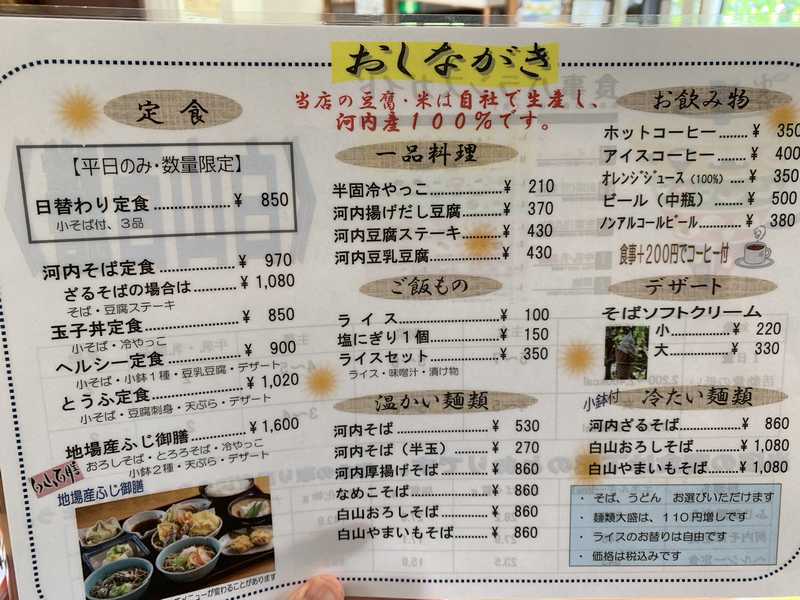 おしながき
当店の豆腐・米は自社で生産し、
河内産100%です。
定食
【平日のみ・数量限定】
日替わり定食 ¥ 850
小そば付、3品
河内そば定食 ¥ 970
ざるそばの場合は ¥ 1,080
そば・豆腐ステーキ
玉子丼定食 ¥ 850
小そば・冷やっこ
ヘルシー定食 ¥ 900
小そば・小鉢1種・豆乳豆腐・デザート
とうふ定食 ¥ 1,020
小そば・豆腐刺身・天ぷら・デザート
地場産ふじ御膳 ¥ 1,600
おろしそば・とろろそば・冷やっこ
小鉢2種・天ぷら・デザート
地場産ふじ御膳
メニューが変わることがあります
一品料理
半固冷やっこ ¥ 210
河内揚げだし豆腐 ¥ 370
河内豆腐ステーキ ¥ 430
河内豆乳豆腐 ¥ 430
ご飯もの
ライス ¥ 100
塩にぎり1個 ¥ 150
ライスセット ¥ 350
ライス・味噌汁・漬け物
温かい麺類
河内そば ¥ 530
河内そば(半玉) ¥ 270
河内厚揚げそば ¥ 860
なめこそば ¥ 860
白山おろしそば ¥ 860
白山やまいもそば ¥ 860
お飲み物
ホットコーヒー ¥ 350
アイスコーヒー ¥ 400
オレンジジュース(100%) ¥ 350
ビール(中瓶) ¥ 500
ノンアルコールビール ¥ 380
食事+200円でコーヒー付
デザート
そばソフトクリーム
小 ¥ 220
大 ¥ 330
小鉢付 冷たい麺類
河内ざるそば ¥ 860
白山おろしそば ¥ 1,080
白山やまいもそば ¥ 1,080
・ そば、うどん お選びいただけます
・ 麺類大盛は、110円増しです
・ ライスのお替りは自由です
・ 価格は税込みです